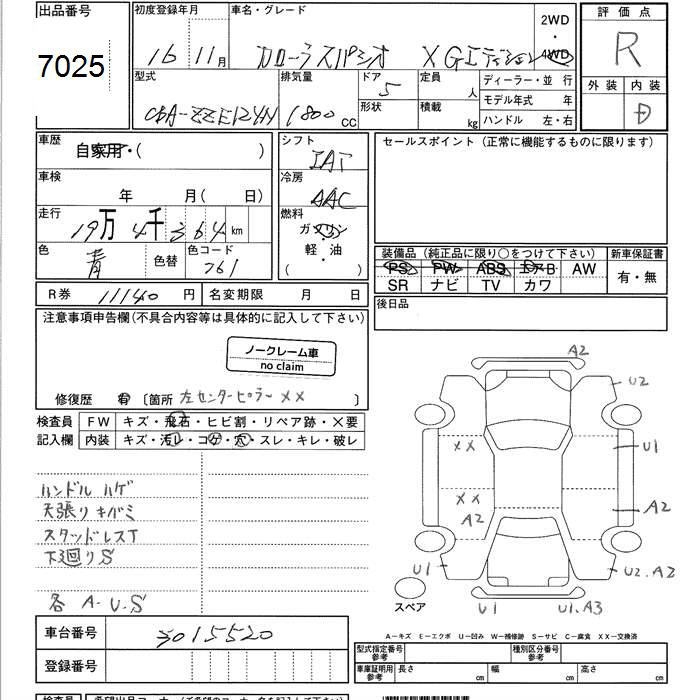 出品番号
7025
初度登録年月
16 11月
車名・グレード
カローラスパシオ XGエディション
2WD
・
4WD
評価点
R
外装 内装
D
型式
CBA-ZZE124N
排気量
1800 CC
ドア
5
形状
定員
人
積載
kg
ディーラー・並行
モデル年式 年
ハンドル 左・右
車歴
自家用・( )
車検
年 月( 日)
走行
19万4千364 km
色
青
色替
色コード
761
シフト
IAT
冷房
AAC
燃料
ガソリン
・
軽・油
( )
セールスポイント(正常に機能するものに限ります)
装備品(純正品に限り○をつけて下さい)
PS PW ABS エアB AW
SR ナビ TV カワ
新車保証書
有・無
後日品
R券 11140 円
名変期限 月 日
注意事項申告欄(不具合内容等は具体的に記入して下さい)
ノークレーム車
no claim
修復歴 有 〔箇所 左センターピラーXX 〕
検査員
記入欄
FW キズ・飛石・ヒビ割・リペア跡・X要
内装 キズ・汚レ・コゲ・穴・スレ・キレ・破レ
ハンドルハゲ
天張りキバミ
スタッドレスT
下廻りS
各 A.U.S
A2
U2
XX
U1
XX
A2
A2
U1
U2.A2
スペア
U1
U1.A3
A−キズ E−エクボ U−凹み W−補修跡 S−サビ C−腐食 XX−交換済
車台番号 3015520
登録番号
型式指定番号
参考
種別区分番号
参考
車庫証明用
参考
長さ cm
幅 cm
高さ cm